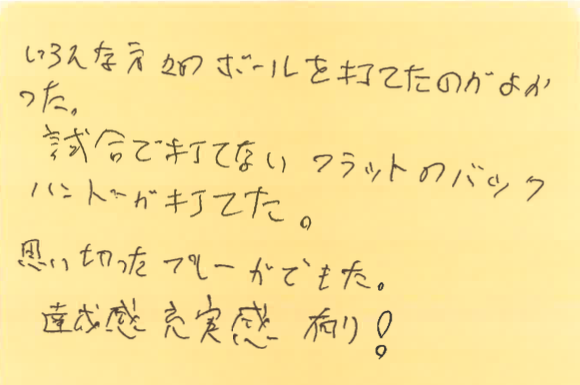 いろんな球のボールを打てたのがよか
った。
試合で打てない フラットのバック
ハンドが打てた。
思い切ったプレーができた。
達成感 充実感 有り!